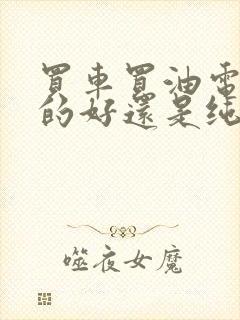 買車買油電
的好還是純
噬夜女魔